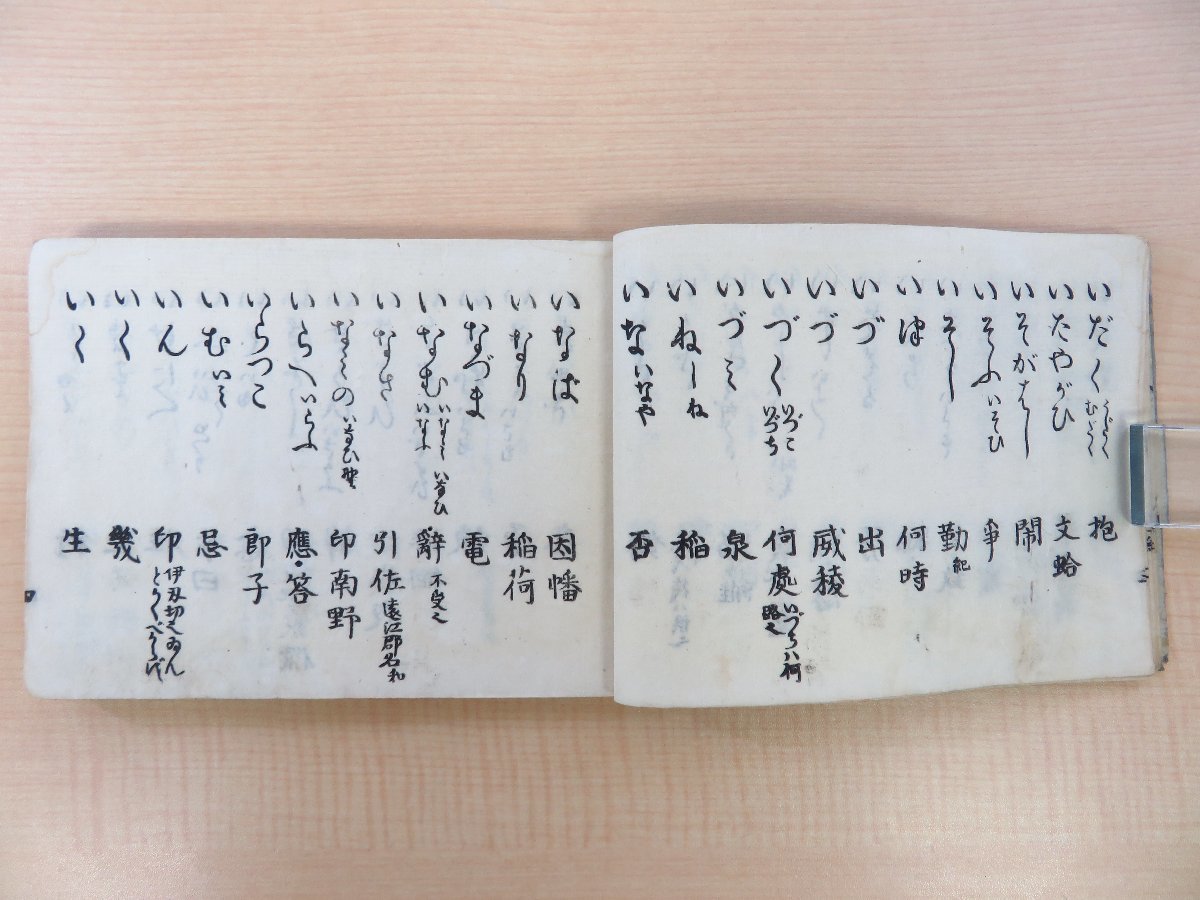 いだく うだく むだく 抱
いたやがひ 文蛤
いそがはし 鬧
いそふ いそひ 争
いそし 勤 紀
いつ 何時
いづ 出
いづ 威稜
いづく いづこ いづち 何處 いづらハ何 略之
いづみ 泉
いね しね 稲
いな いなや 否
いなば 因幡
いなり 稲荷
いなづま 電
いなむ いなみ いなふ いなひ 辭 不受之
いなさ 引佐 遠江郡名
いなみの いなひ野 印南野
いらへ いらふ 應・答
いらつこ 郎子
いむ いみ 忌
いん 印
いく 幾
いく 生